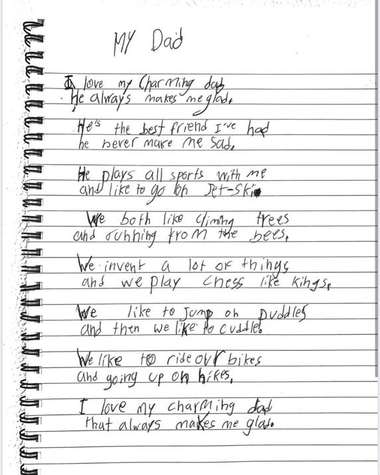 My Dad
I love my Charming dad
he always makes me glad.
He's the best friend I've had
he never make me sad.
He plays all sports with me
and like to go on Jet-Ski
We both like climing trees
and running from the bees.
We invent a lot of things
and we play chess like kings.
We like to jump on puddles
and then we like to cuddle.
We like to ride our bikes
and going up on hikes.
I love my charming dad
that always makes me glad.